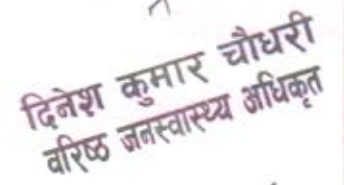 दिनेश कुमार चौधरी
वरिष्ठ जनस्वास्थ्य अधिकृत